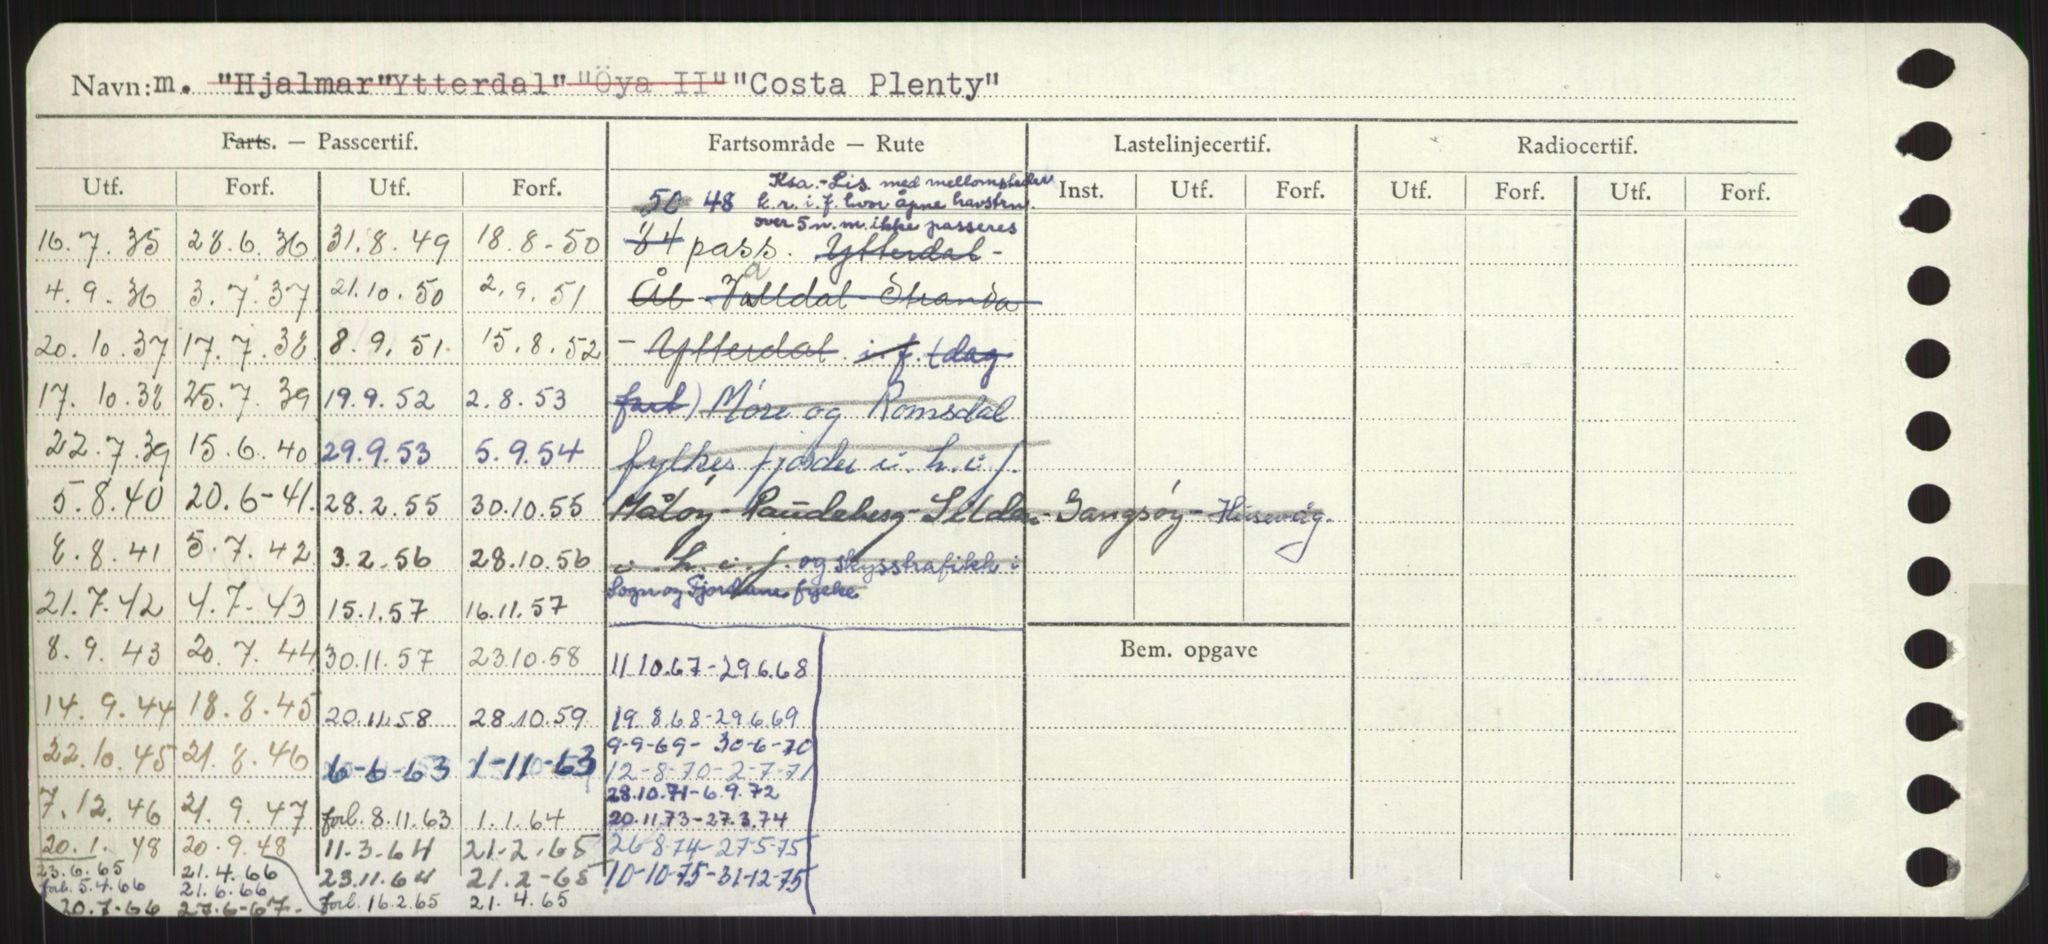 Navn: m. "Hjalmar" "Ytterdal" "Öya II" "Costa Plenty"
Farts. — Passcertif. Fartsområde — Rute Lastelinjecertif. Radiocertif.
Utf. Forf. Utf. Forf. Inst. Utf. Forf. Utf. Forf. Utf. Forf.
Ksa.-Lis. med mellomsteder
50 48 k.r.i.f. hvor åpne havstrn.
over 5 n.m. ikke passeres
16.7.35 28.6.36 31.8.49 18.8-50 84 pass. Ytterdal -
4.9.36 3.7.37 21.10.50 2.9.51 Ål - Valldal - Stranda
20.10.37 17.7.38 8.9.51. 15.8.52 - Ytterdal i.f. (dag
17.10.38 25.7.39 19.9.52 2.8.53 fart) Möre og Romsdal
22.7.39 15.6.40 29.9.53 5.9.54 fylkes fjorder i. h.i.f.
5.8.40 20.6-41. 28.2.55 30.10.55 Måloy - Raudeberg - Silda - Gangsøy - Husevåg.
8.8.41 5.7.42 3.2.56 28.10.56 i. h.i.f. og skysstrafikk i
Sogn og Fjordane fylke
21.7.42 4.7-43 15.1.57 16.11.57
8.9.43 20.7.44 30.11.57 23.10.58 11.10.67-29.6.68 Bem. opgave
14.9.44 18.8.45 20.11.58 28.10.59 19.8.68-29.6.69
9-9-69- 30-6-70
22.10.45 21.8.46 6-6-63 1-11-63 12-8-70-2-7-71
28.10.71-6.9.72
7.12.46 21.9.47 forl. 8.11.63 1.1.64 20.11.73-27.3.74
20.1.48 20.9.48 11.3.64 21.2.65 26-8-74-27-5-75
23.6.65 21.4.66 23.11.64 21.2-65 10-10-75-31-12-75
forl. 5.4.66 21.6.66
20.7-66 27.6-67- forl. 16.2.65 21.4.65